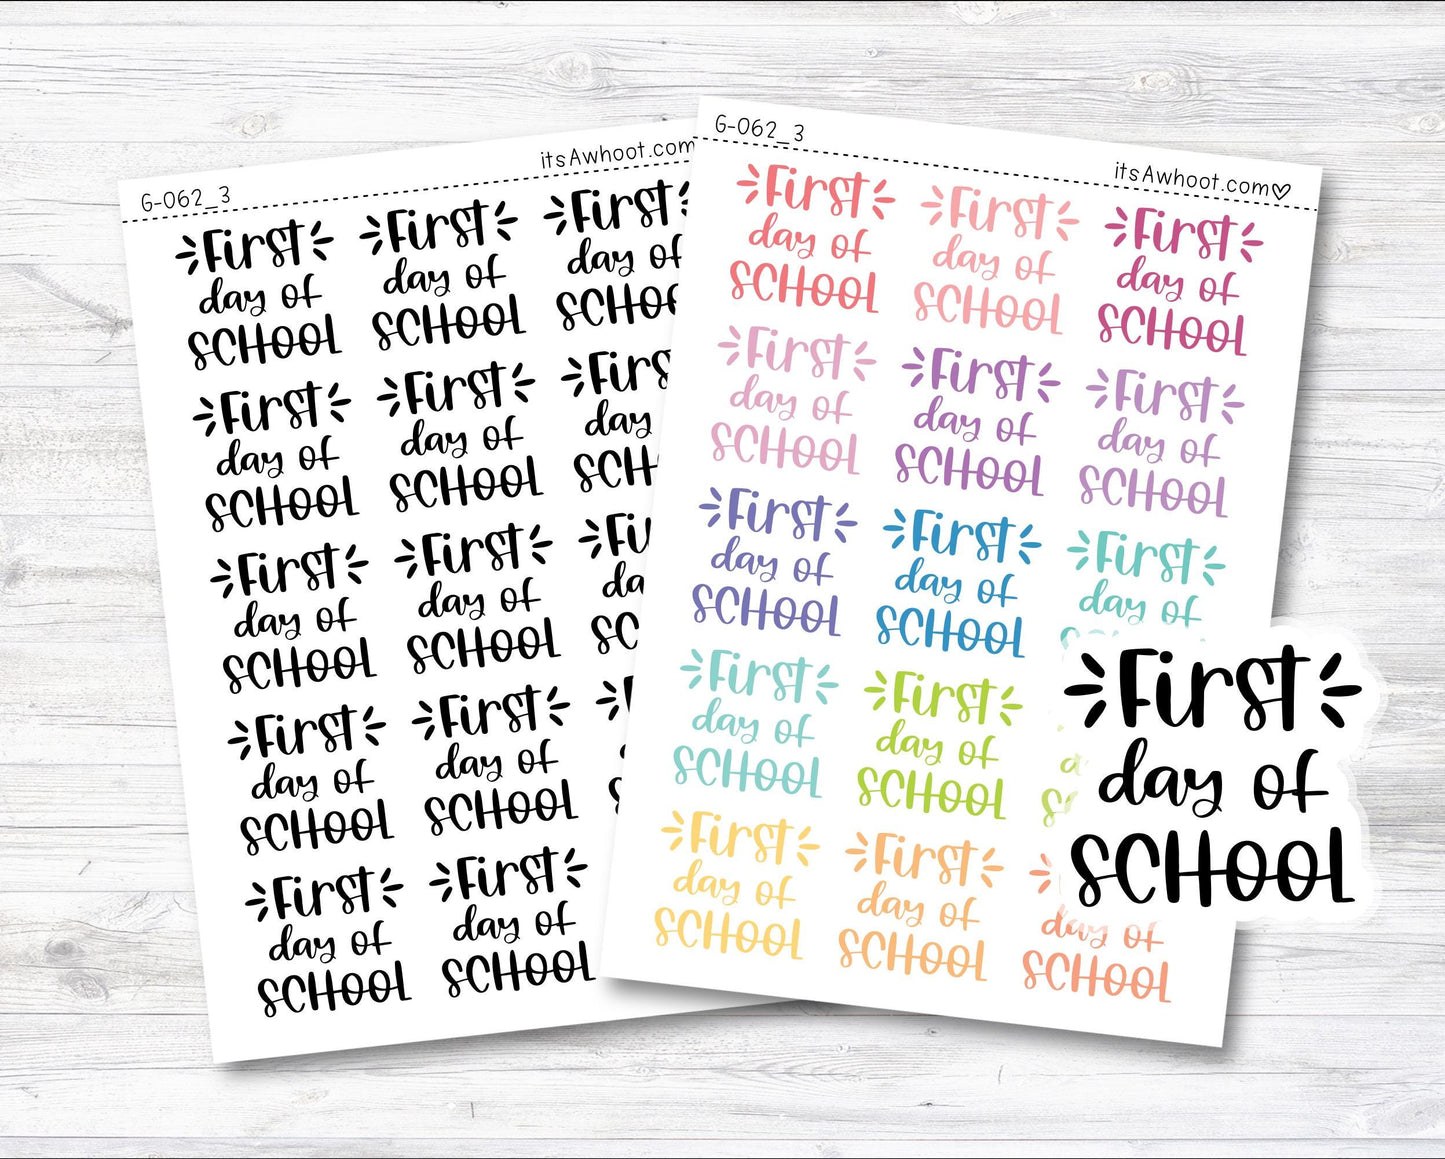 G-062_3
itsAwhoot.com
First
day of
SCHOOL
First
day of
SCHOOL
First
day of
SCHO
First
day of
SCHOOL
First
day of
SCHOOL
Firs
day
SCH
First
day of
SCHOOL
First
day of
SCHOOL
Fir
da
SC
First
day of
SCHOOL
First
day of
SCHOOL
First
day of
SCHOOL
First
day of
SCHOOL
G-062_3
itsAwhoot.com♡
First
day of
SCHOOL
First
day of
SCHOOL
First
day of
SCHOOL
First
day of
SCHOOL
First
day of
SCHOOL
First
day of
SCHOOL
First
day of
SCHOOL
First
day of
SCHOOL
First
day of
First
day of
SCHOOL
First
day of
SCHOOL
First
day of
SCHOOL
First
day of
SCHOOL
day of
SCHOOL
First
day of
SCHOOL